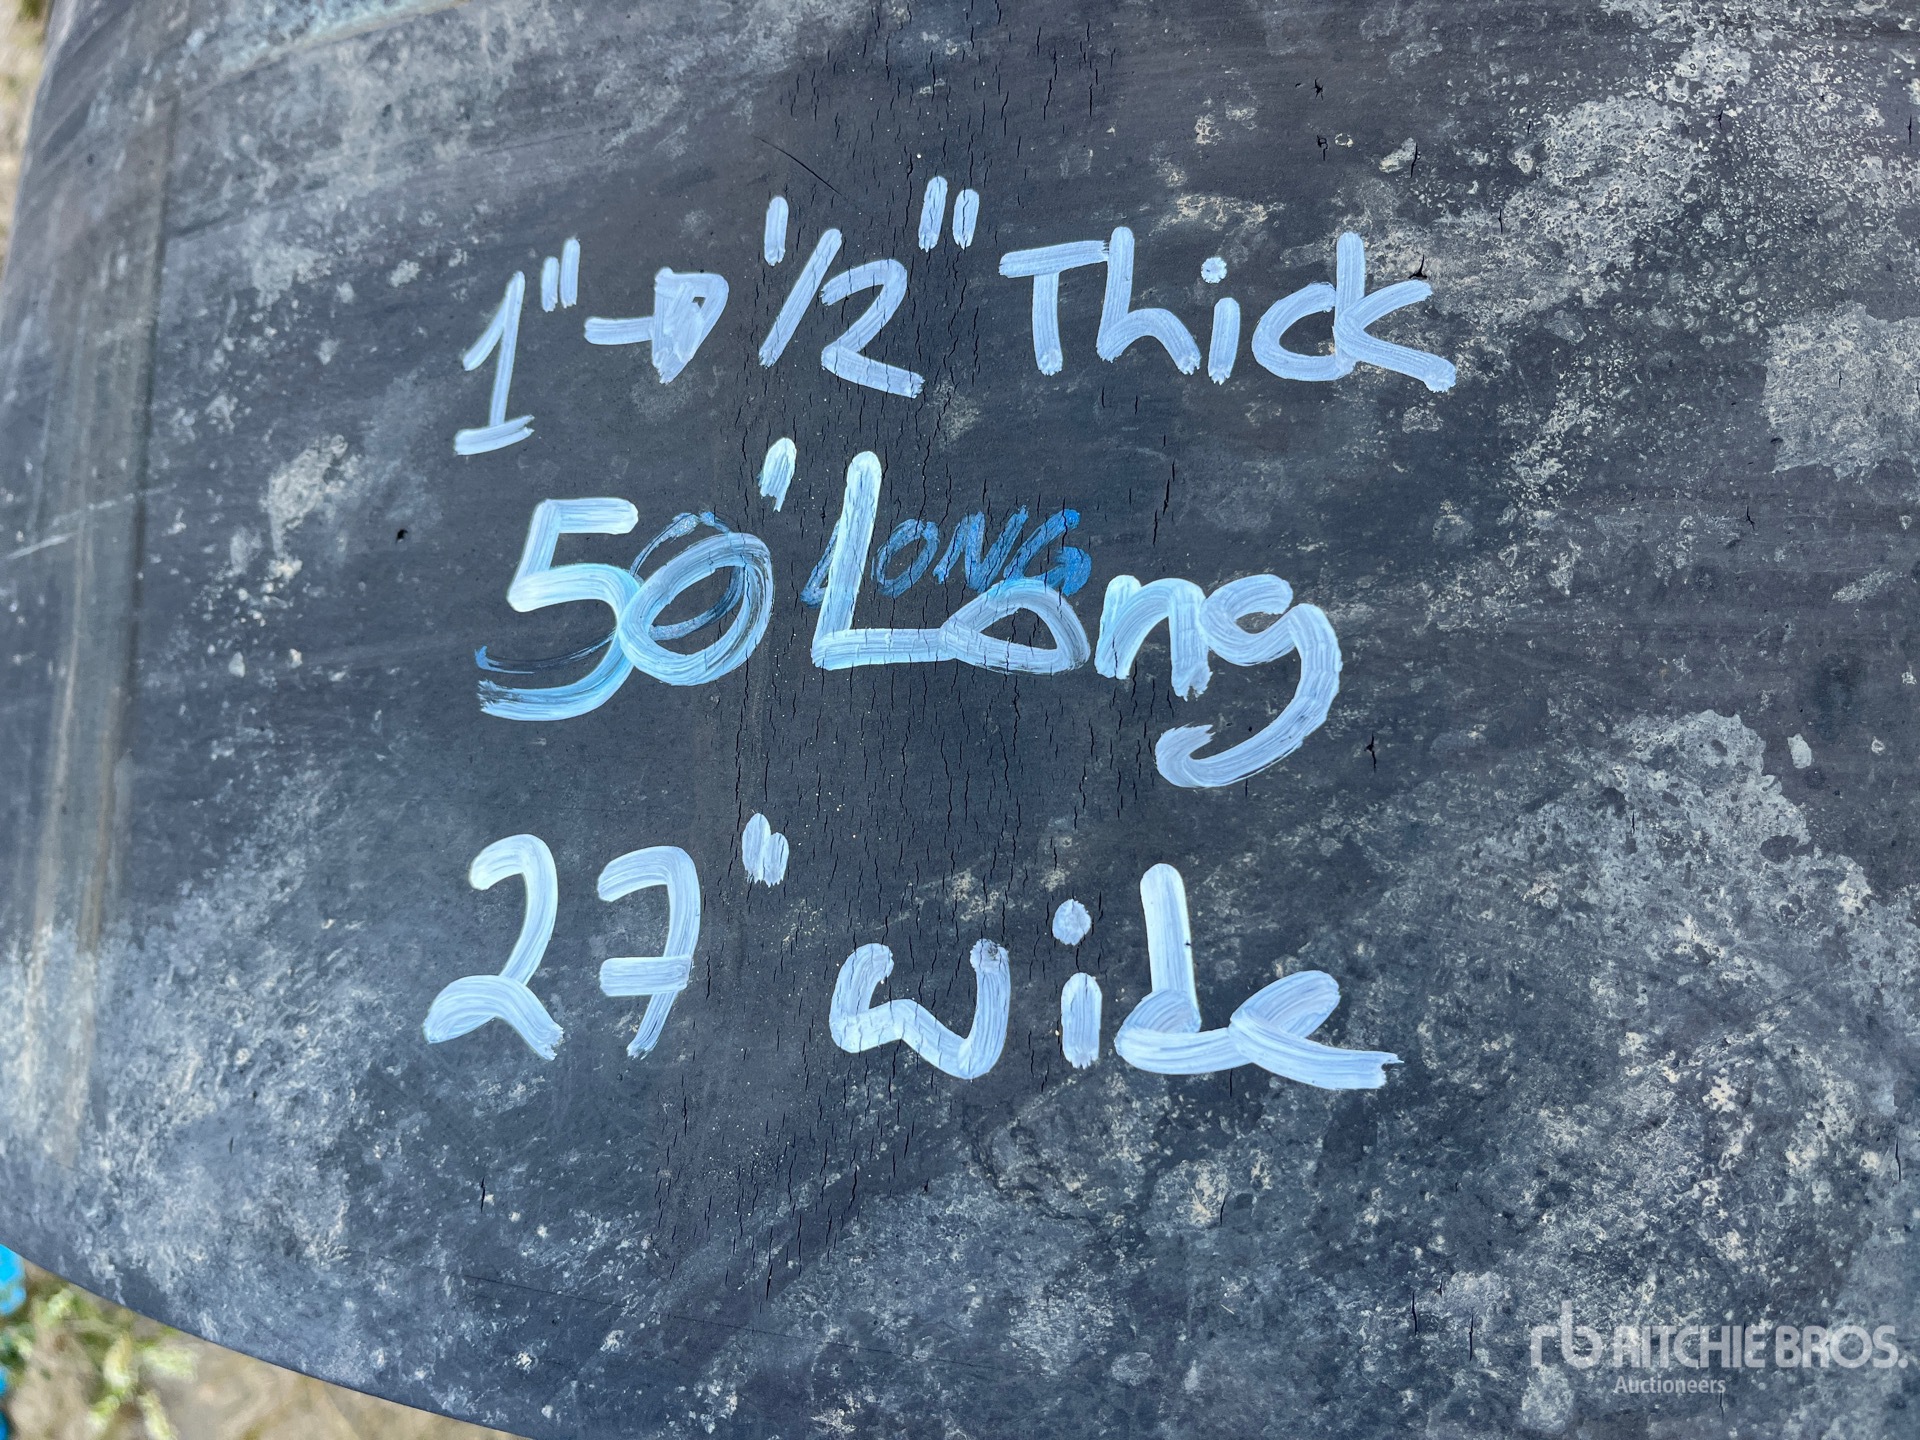 1"-1/2" Thick
50' Long
LONG
27" wide
rb RITCHIE BROS.
Auctioneers